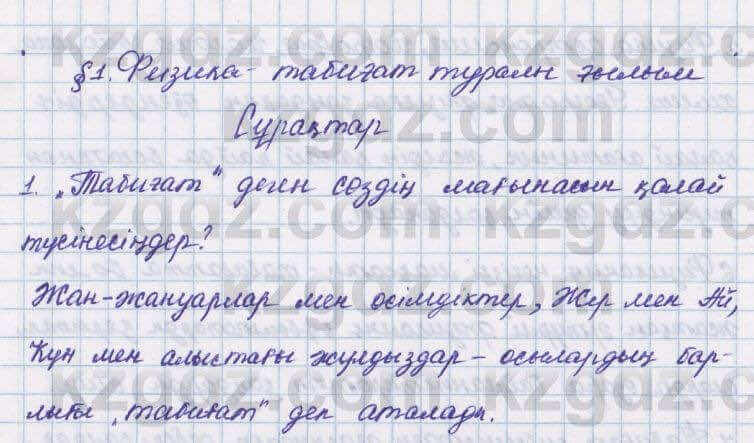 §1. Физика - табиғат туралы ғылым
Сұрақтар
1. „Табиғат" деген сөздің мағынасын қалай
түсінесіңдер?
Жан-жануарлар мен өсімдіктер, Жер мен Ай,
Күн мен алыстағы жұлдыздар – осылардың бар-
лығы „табиғат" деп аталады.